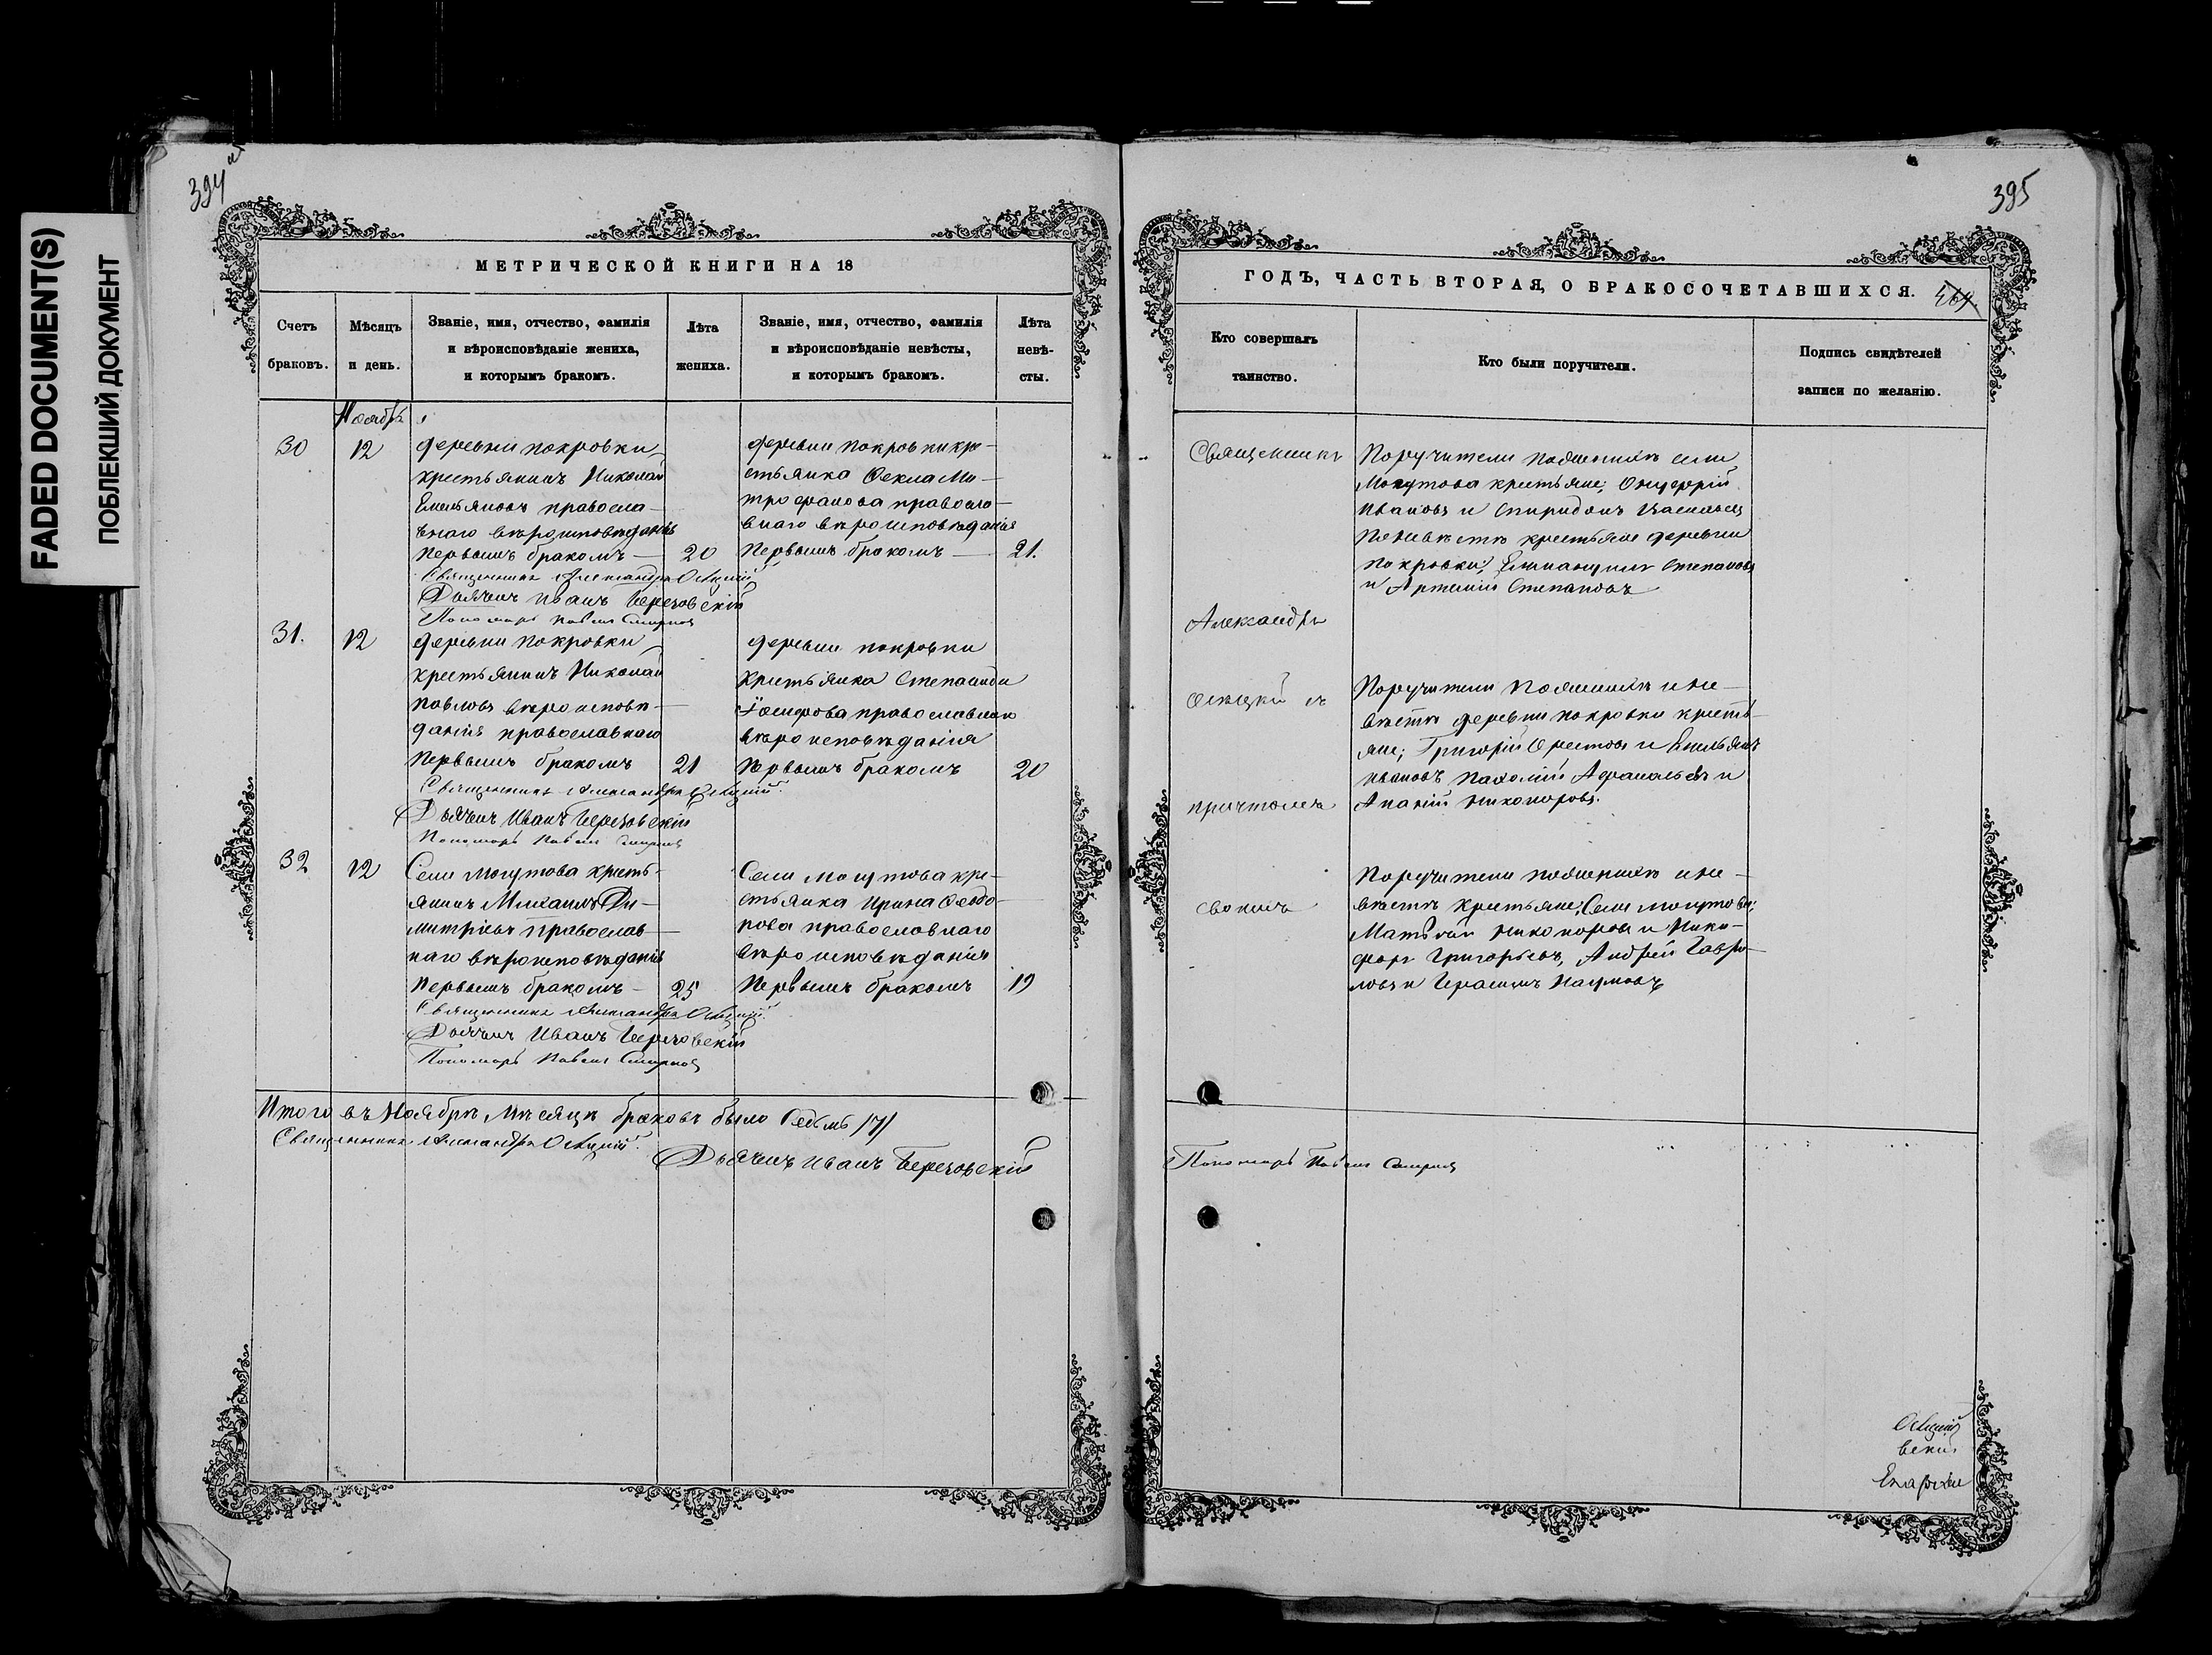 FADED DOCUMENT(S)
ПОБЛЕКШИЙ ДОКУМЕНТ
394
МЕТРИЧЕСКОЙ КНИГИ НА 18
Счетъ браковъ.
Мѣсяцъ и день.
Званіе, имя, отчество, фамилія
и вѣроисповѣданіе жениха,
и которымъ бракомъ.
Лѣта жениха.
Званіе, имя, отчество, фамилія
и вѣроисповѣданіе невѣсты,
и которымъ бракомъ.
Лѣта невѣ-
сты.
Ноябрь
30
12
деревни Покровки
крестьянинъ Николай
Емельяновъ правосла-
внаго вѣроисповѣданія
первымъ бракомъ
20
деревни Покровки кре-
стьянка Фекла Ми-
трофанова правосла-
внаго вѣроисповѣданія
Первымъ бракомъ
21.
Священникъ Александръ
Дьячекъ Иванъ Березовскій
Пономарь Павелъ Смирновъ
31.
12
деревни Покровки
крестьянинъ Николай
Павловъ вѣроисповѣ-
данія православнаго
Первымъ бракомъ
21
деревни Покровки
крестьянка Степанида
Іосифова православнаго
вѣроисповѣданія
Первымъ бракомъ
20
Священникъ Александръ
Дьячекъ Иванъ Березовскій
Пономарь Павелъ Смирновъ
32
12
Села Могутова кресть-
янинъ Михаилъ Ди-
митріевъ православ-
наго вѣроисповѣданія
Первымъ бракомъ
25
Села Могутова кре-
стьянка Ирина Феодо-
рова православнаго
вѣроисповѣданія
Первымъ бракомъ
19
Священникъ Александръ
Дьячекъ Иванъ Березовскій
Пономарь Павелъ Смирновъ
Итого въ Ноябрѣ мѣсяцѣ браковъ было седьмь /7/
Священникъ Александръ
Дьячекъ Иванъ Березовскій
395
ГОДЪ, ЧАСТЬ ВТОРАЯ, О БРАКОСОЧЕТАВШИХСЯ.
Кто совершалъ
таинство.
Кто были поручители.
Подпись свидѣтелей
записи по желанію.
Священникъ
Александръ
съ
причтомъ
своимъ
Поручители по женихѣ села
Могутова крестьяне; Онуфрій
Ивановъ и Спиридонъ Васильевъ
По невѣстѣ крестьяне деревни
Покровки; Степановъ
и Артемій Степановъ
Поручители по женихѣ и не-
вѣстѣ деревни Покровки кресть-
яне; Григорій Орестовъ и Емельянъ
Ивановъ Пахомій Афанасьевъ и
Ананій Никоноровъ.
Поручители по женихѣ и не-
вѣстѣ крестьяне; Села Могутова;
Матвѣй Никоноровъ и Ники-
форъ Григорьевъ, Андрей Гаври-
ловъ и Герасимъ Наумовъ
Пономарь Павелъ Смирновъ